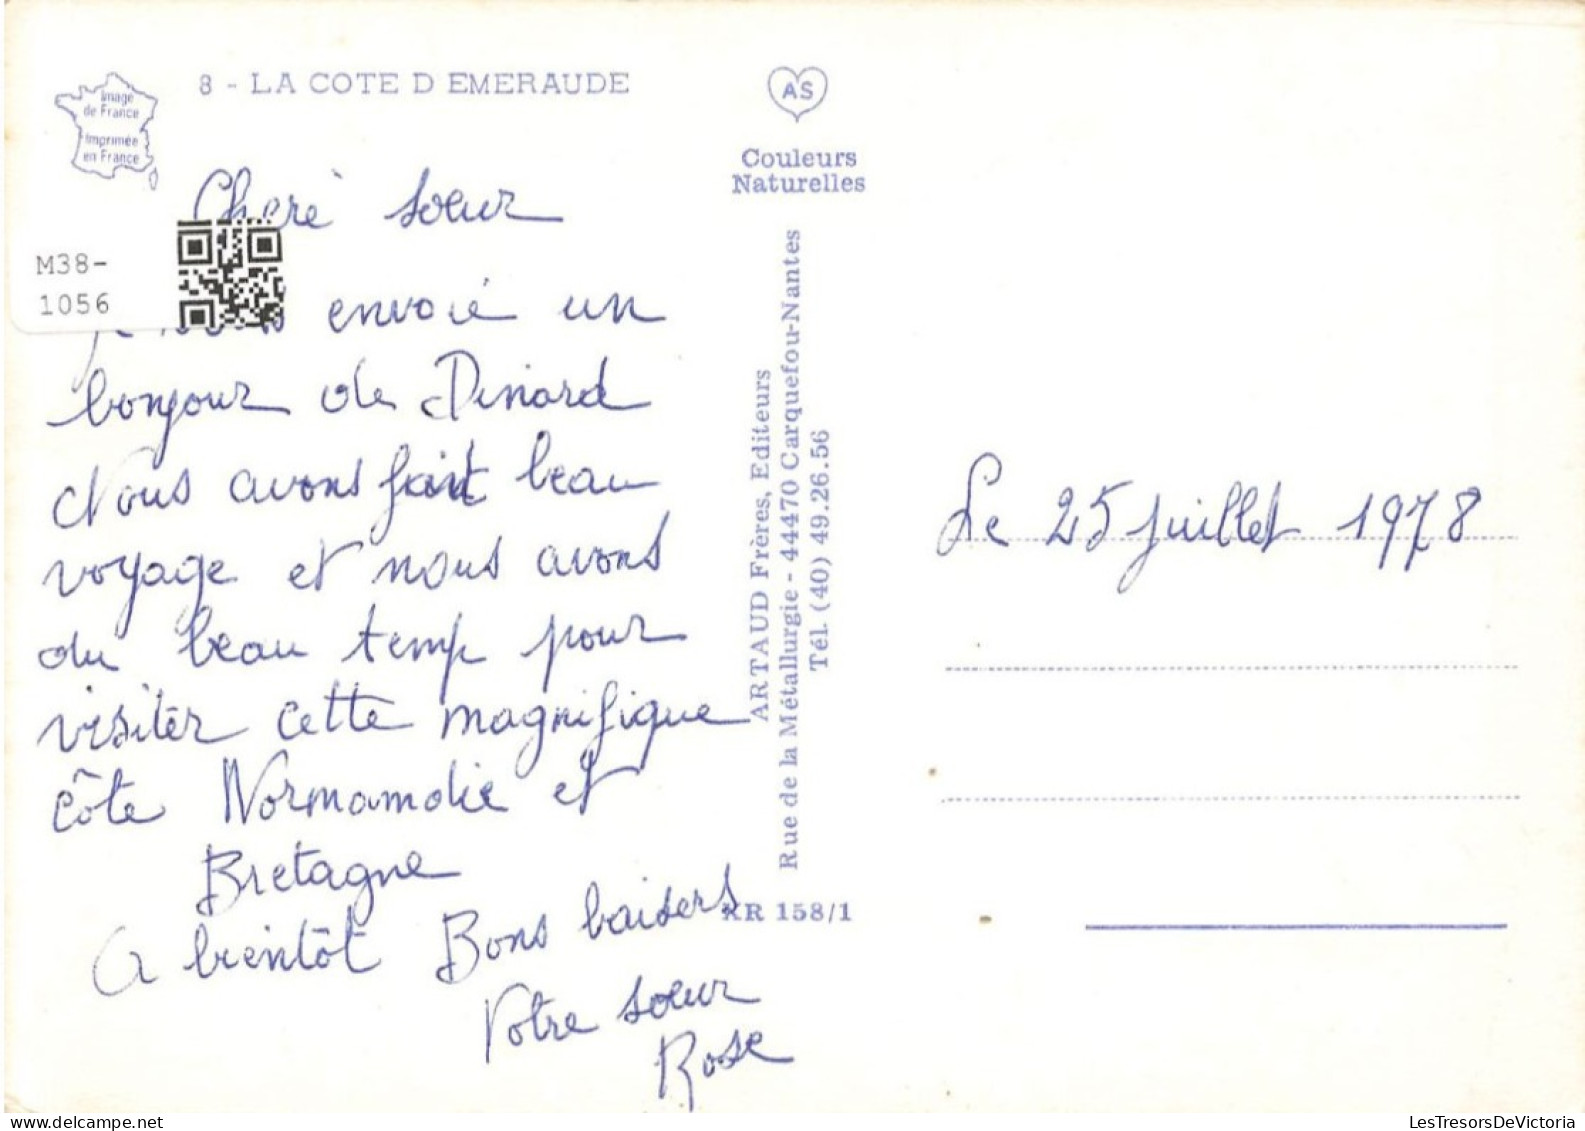 8 - LA COTE D EMERAUDE
Image
de France
Imprimée
en France
AS
Couleurs
Naturelles
M38-
1056
Cheré soeur
envoié un
bonjour de Dinard
Nous avons fait beau
voyage et nous avons
du beau temp pour
visiter cette magnifique
côte Normandie et
Bretagne
A bientôt Bons baisers
Votre soeur
Rose
ARTAUD Frères, Editeurs
Rue de la Métallurgie - 44470 Carquefou-Nantes
Tél. (40) 49.26.56
KR 158/1
Le 25 juillet 1978
LesTresorsDeVictoria
www.delcampe.net